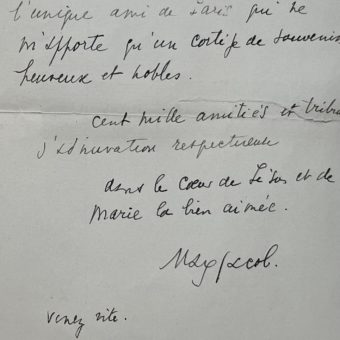 l'unique ami de Paris qui ne
m'apporte qu'un cortège de souvenirs
heureux et nobles.
cent mille amitiés et
d'admiration respectueuse
dans le cœur de Jésus et de
Marie la bien aimée.
Max Jacob.
venez vite.